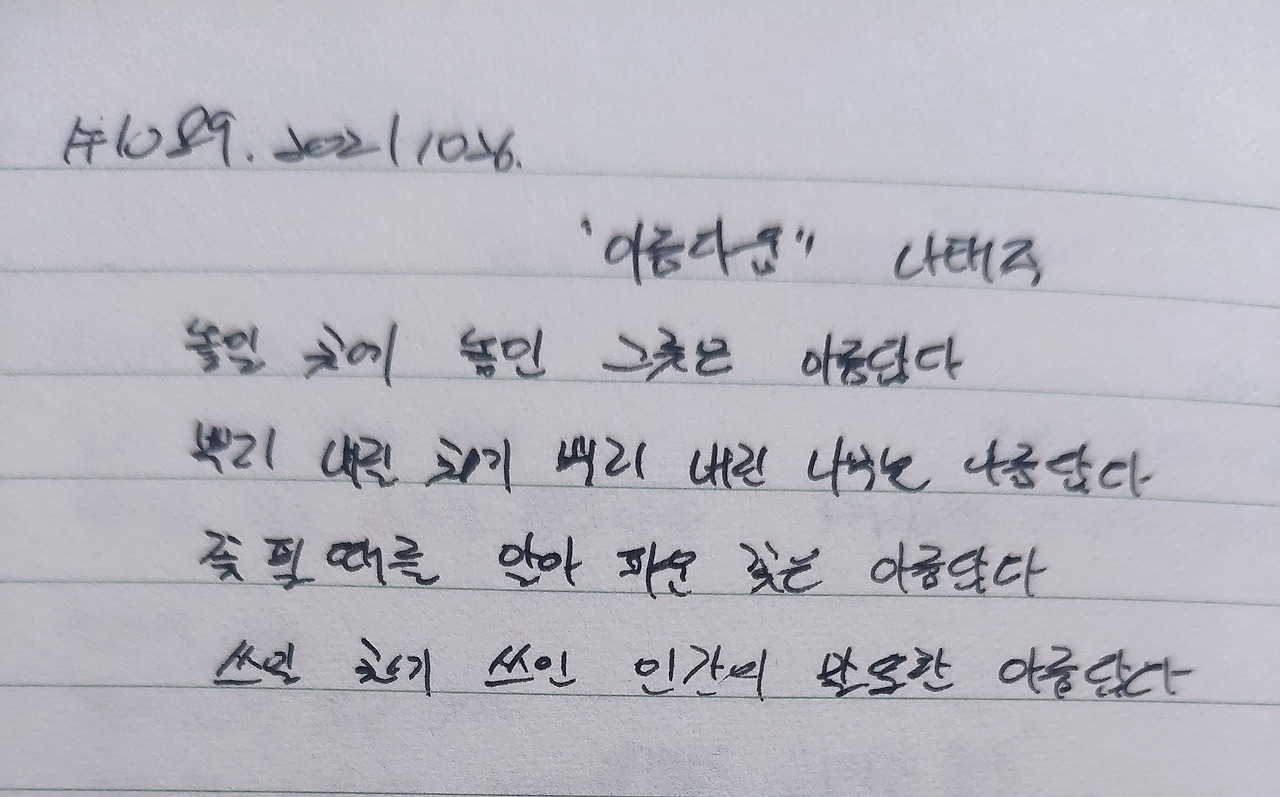 #1089. 20211026.
'아름다움" 나태주
놓일 곳에 놓인 그릇은 아름답다
뿌리 내릴 곳에 뿌리 내린 나무는 아름답다
꽃 필 때를 알아 피운 꽃은 아름답다
쓰일 곳에 쓰인 인간의 말 또한 아름답다